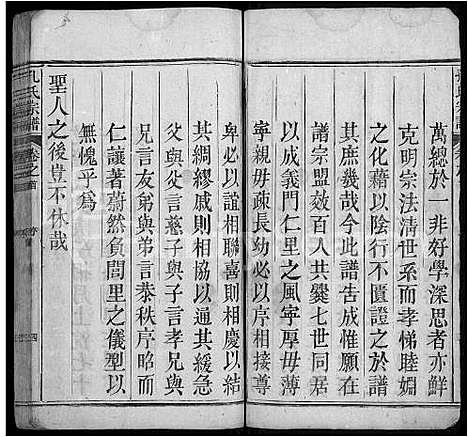 萬總於一非好學深思者亦鮮
克明宗法清世系而孝悌睦婣
之化藉以陰行不匱證之於譜
其庶幾哉今此譜告成惟願在
譜宗盟数百人共爨七世同居
式成義門仁里之風寧厚毋薄
寧親毋疎長幼必以序相接尊
卑必以誼相聯喜則相慶以結
其綢繆戚則相合以通其緩急
父與父言慈子與子言孝兄與
兄言友弟與弟言恭秩序昭而
仁讓著蔚然負閭里之儀型以
無愧乎爲
聖人之後豈不休哉
孔氏宗譜
卷之首
四